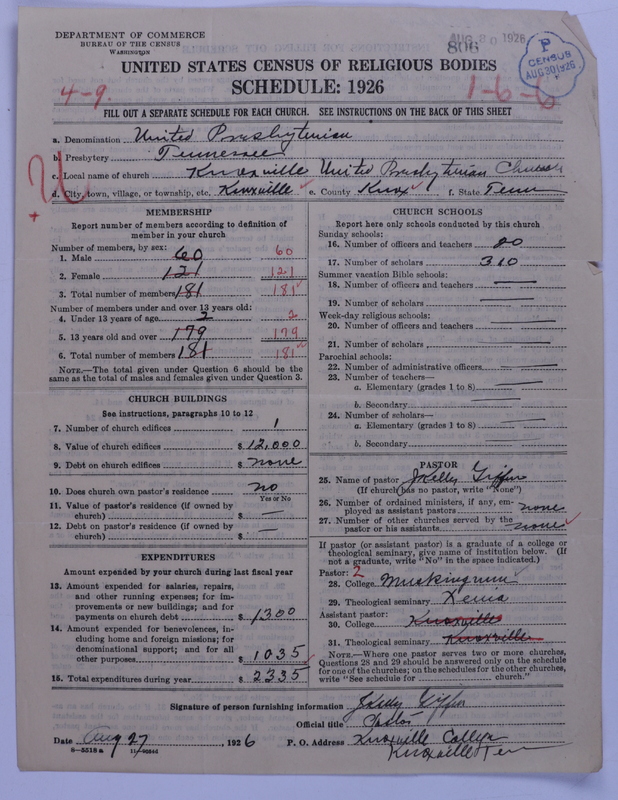 DEPARTMENT OF COMMERCE
BUREAU OF THE CENSUS
WASHINGTON
AUG 30 1926
806
P
CENSUS
AUG 30 1926
UNITED STATES CENSUS OF RELIGIOUS BODIES
SCHEDULE: 1926
4-9.
1-6-6
FILL OUT A SEPARATE SCHEDULE FOR EACH CHURCH. SEE INSTRUCTIONS ON THE BACK OF THIS SHEET
a. Denomination United Presbyterian
b. Presbytery Tennessee
c. Local name of church Knoxville United Presbyterian Church
d. City, town, village, or township, etc. Knoxville e. County Knox f. State Tenn
MEMBERSHIP
Report number of members according to definition of
member in your church
Number of members, by sex:
1. Male 60 60
2. Female 121 121
3. Total number of members 181 181
Number of members under and over 13 years old:
4. Under 13 years of age 2 2
5. 13 years old and over 179 179
6. Total number of members 181 181
NOTE.—The total given under Question 6 should be
same as the total of males and females given under Question 3.
CHURCH BUILDINGS
See instructions, paragraphs 10 to 12
7. Number of church edifices 1
8. Value of church edifices $ 12,000
9. Debt on church edifices $ none
10. Does church own pastor's residence no
Yes or No
11. Value of pastor's residence (if owned by
church) $ —
12. Debt on pastor's residence (if owned by
church) $ —
EXPENDITURES
Amount expended by your church during last fiscal year
13. Amount expended for salaries, repairs,
and other running expenses; for im-
provements or new buildings; and for
payments on church debt $ 1300
14. Amount expended for benevolences, in-
cluding home and foreign missions; for
denominational support; and for all
other purposes $ 1035
15. Total expenditures during year $ 2335
CHURCH SCHOOLS
Report here only schools conducted by this church
Sunday schools:
16. Number of officers and teachers 20
17. Number of scholars 310
Summer vacation Bible schools:
18. Number of officers and teachers —
19. Number of scholars —
Week-day religious schools:
20. Number of officers and teachers —
21. Number of scholars —
Parochial schools:
22. Number of administrative officers —
23. Number of teachers—
a. Elementary (grades 1 to 8) —
b. Secondary —
24. Number of scholars—
a. Elementary (grades 1 to 8) —
b. Secondary —
PASTOR
25. Name of pastor J Kelly Giffen
(If church has no pastor, write "None")
26. Number of ordained ministers, if any, em-
ployed as assistant pastors none
27. Number of other churches served by the
pastor or his assistants none
If pastor (or assistant pastor) is a graduate of a college or
theological seminary, give name of institution below. (If
not a graduate, write "No" in the space indicated.)
Pastor: 2
28. College Muskingum
29. Theological seminary Xenia
Assistant pastor:
30. College Knoxville
31. Theological seminary Knoxville
NOTE.—Where one pastor serves two or more churches,
Questions 28 and 29 should be answered only on the schedule
for one of the churches; on the schedules for the other churches,
write "See schedule for church."
Signature of person furnishing information J Kelly Giffen
Official title Pastor
Date Aug 27, 1926 P. O. Address Knoxville College
Knoxville Tenn
8—5518 a